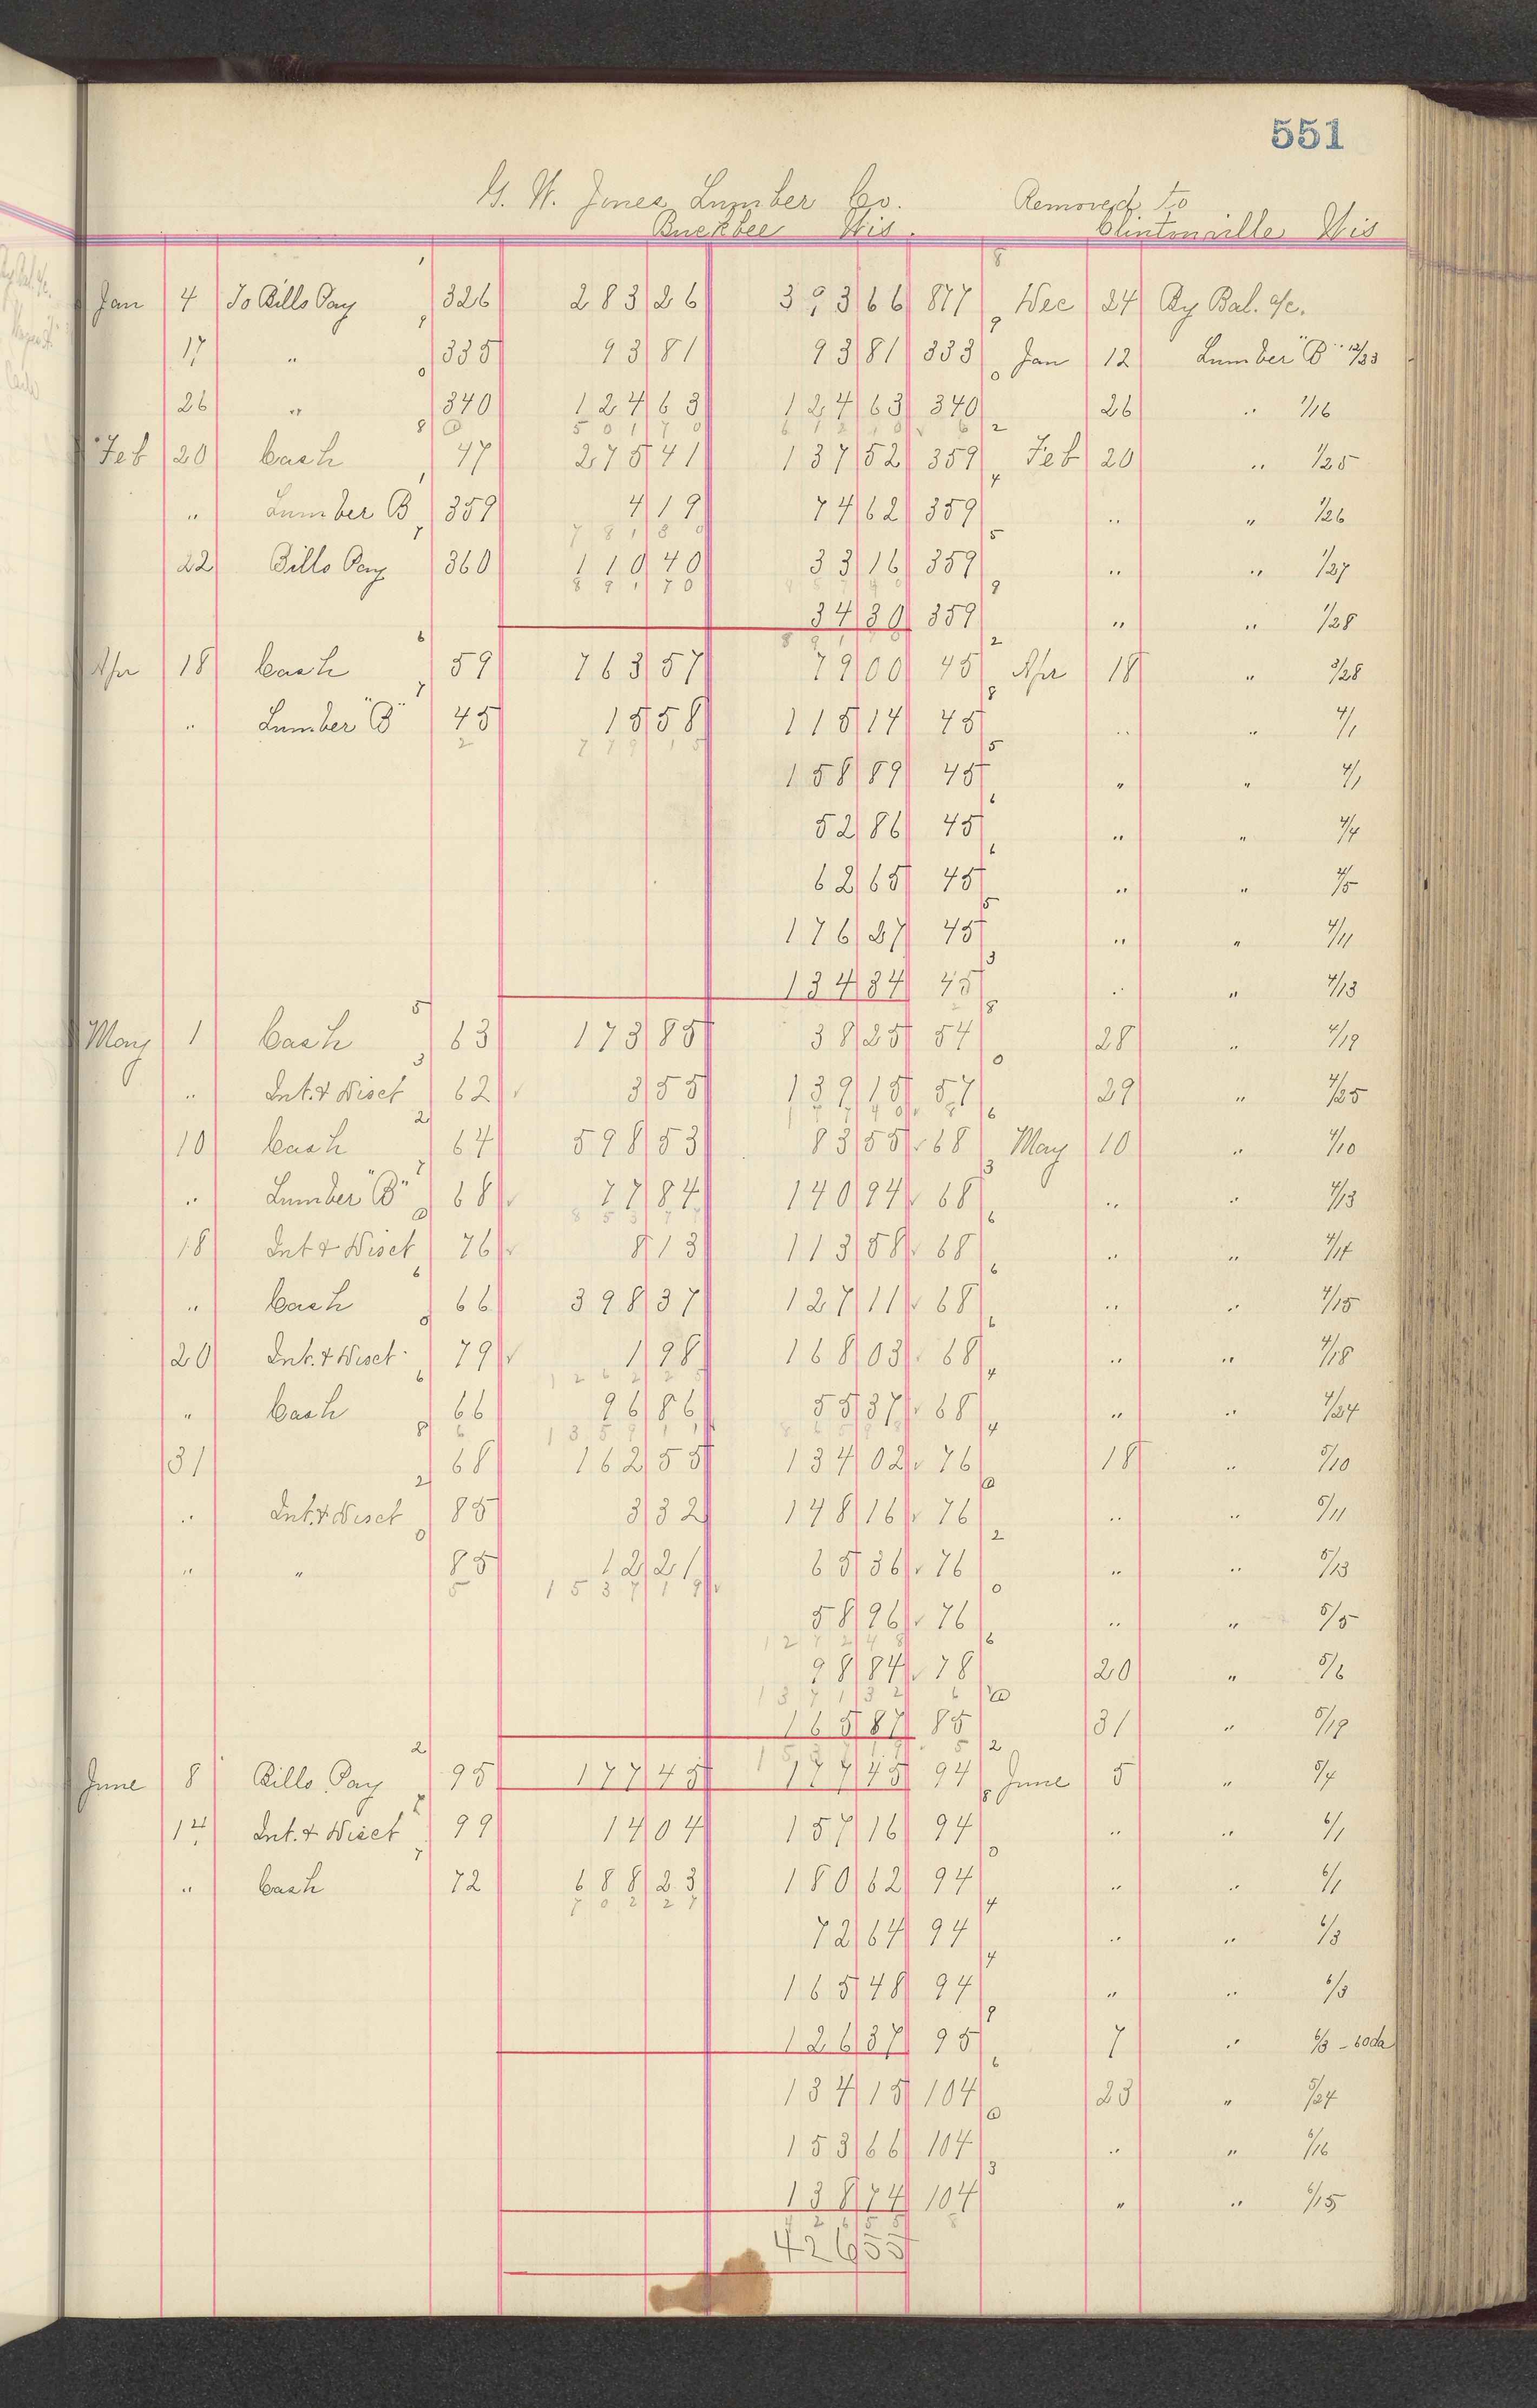 551
G. W. Jones Lumber Co. Removed to
Buckbee Wis. Clintonville Wis
Jan 4 To Bills Pay 326 283 26 393 66 877 Dec 24 By Bal. a/c.
17 " 335 93 81 93 81 333 Jan 12 Lumber "B" 12/23
26 " 340 124 63 124 63 340 26 " 1/16
Feb 20 Cash 47 275 41 137 52 359 Feb 20 " 1/25
" Lumber B 359 4 19 74 62 359 " " 1/26
22 Bills Pay 360 110 40 33 16 359 " " 1/27
34 30 359 " " 1/28
Apr 18 Cash 59 763 57 79 00 45 Apr 18 " 3/28
" Lumber "B" 45 15 58 115 14 45 " " 4/1
158 89 45 " " 4/1
52 86 45 " " 4/4
62 65 45 " " 4/5
176 27 45 " " 4/11
134 34 45 " " 4/13
May 1 Cash 63 173 85 38 25 54 28 " 4/19
" Int. & Disct 62 3 55 139 15 57 29 " 4/25
10 Cash 64 598 53 83 55 68 May 10 " 4/10
" Lumber "B" 68 77 84 140 94 68 " " 4/13
18 Int & Disct 76 8 13 113 58 68 " " 4/14
" Cash 66 398 37 127 11 68 " " 4/15
20 Int. & Disct 79 1 98 168 03 68 " " 4/18
" Cash 66 96 86 55 37 68 " " 4/24
31 68 162 55 134 02 76 18 " 5/10
" Int. & Disct 85 3 32 148 16 76 " " 5/11
" " 85 12 21 65 36 76 " " 5/13
58 96 76 " " 5/5
98 84 78 20 " 5/6
165 87 85 31 " 5/19
June 8 Bills Pay 95 177 45 177 45 94 June 5 " 5/4
14 Int. & Disct 99 14 04 157 16 94 " " 6/1
" Cash 72 688 23 180 62 94 " " 6/1
72 64 94 " " 6/3
165 48 94 " " 6/3
126 37 95 7 " 6/3 - 60da
134 15 104 23 " 5/24
153 66 104 " " 6/16
138 74 104 " " 6/15
426 55